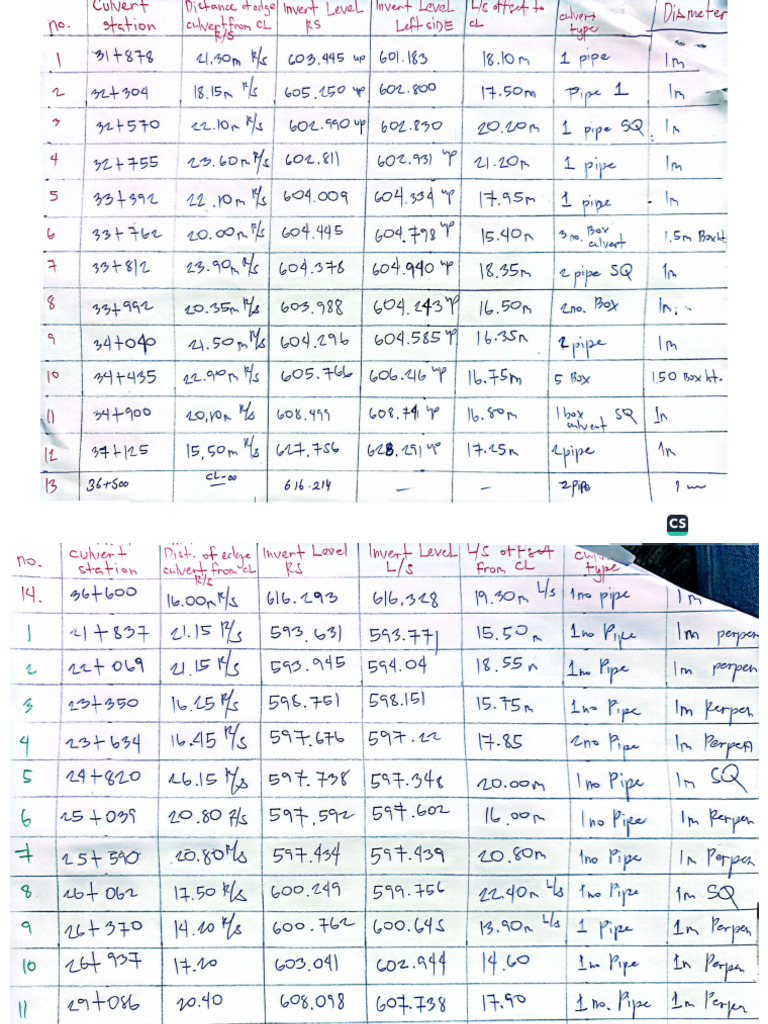 no. Culvert station Distance of edge culvert from CL R/S Invert Level RS Invert Level Left SIDE L/S offset to CL culvert type Diameter
1 31+878 21.30m R/S 603.445 up 601.183 18.10m 1 pipe 1m
2 32+304 18.15m R/S 605.250 up 602.800 17.50m Pipe 1 1m
3 32+570 22.10m R/S 602.990 up 602.830 20.20m 1 pipe SQ 1m
4 32+755 23.60m R/S 602.811 602.931 up 21.20m 1 pipe 1m
5 33+392 22.10m R/S 604.009 604.334 up 17.95m 1 pipe 1m
6 33+762 20.00m R/S 604.445 604.798 up 15.40m 3no. Box culvert 1.5m Box ht
7 33+812 23.90m R/S 604.378 604.940 up 18.35m 2 pipe SQ 1m
8 33+992 20.35m R/S 603.988 604.243 up 16.50m 2no. Box 1m
9 34+040 21.50m R/S 604.296 604.585 up 16.35m 2 pipe 1m
10 34+435 22.90m R/S 605.766 606.216 up 16.75m 5 Box 1.50 Box ht.
11 34+900 20.10m R/S 608.499 608.741 up 16.80m 1 box culvert SQ 1m
12 37+125 15.50m R/S 627.756 628.291 up 17.25m 2 pipe 1m
13 36+500 CL-00 616.214 – – 2 pipe 1m
CS
no. culvert station Dist. of edge culvert from CL R/S Invert Level RS Invert Level L/S L/S offset from CL type
14. 36+600 16.00m R/S 616.293 616.328 19.30m L/S 1no pipe 1m
1 21+837 21.15 R/S 593.631 593.771 15.50m 1no Pipe 1m perpen
2 22+069 21.15 R/S 593.945 594.04 18.55m 1no Pipe 1m perpen
3 23+350 16.25 R/S 598.751 598.151 15.75m 1no Pipe 1m Perpen
4 23+634 16.45 R/S 597.676 597.22 17.85 2no Pipe 1m Perpen
5 24+820 26.15 R/S 597.738 597.348 20.00m 1no Pipe 1m SQ
6 25+039 20.80 R/S 597.592 597.602 16.00m 1no Pipe 1m Perpen
7 25+590 20.80 R/S 597.434 597.439 20.80m 1no Pipe 1m Perpen
8 26+062 17.50 R/S 600.249 599.756 22.40m L/S 1no Pipe 1m SQ
9 26+370 14.20 R/S 600.762 600.645 13.90m L/S 1 Pipe 1m Perpen
10 26+937 17.20 603.041 602.944 14.60 1m Pipe 1m Perpen
11 29+086 20.40 608.098 607.738 17.90 1no. Pipe 1m Perpen